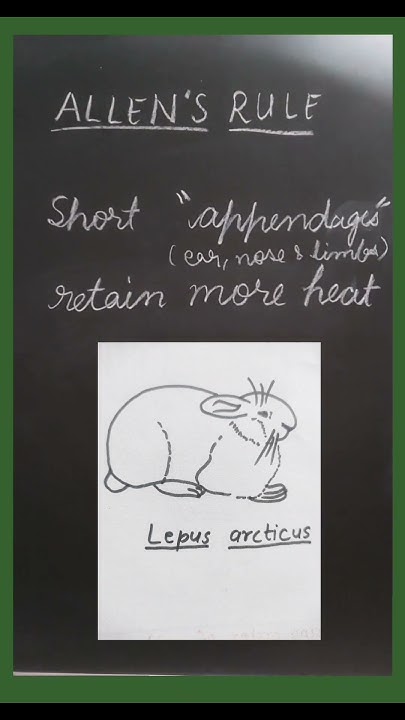 ALLEN'S RULE
Short "appendages"
(ear, nose & limbs)
retain more heat
Lepus arcticus